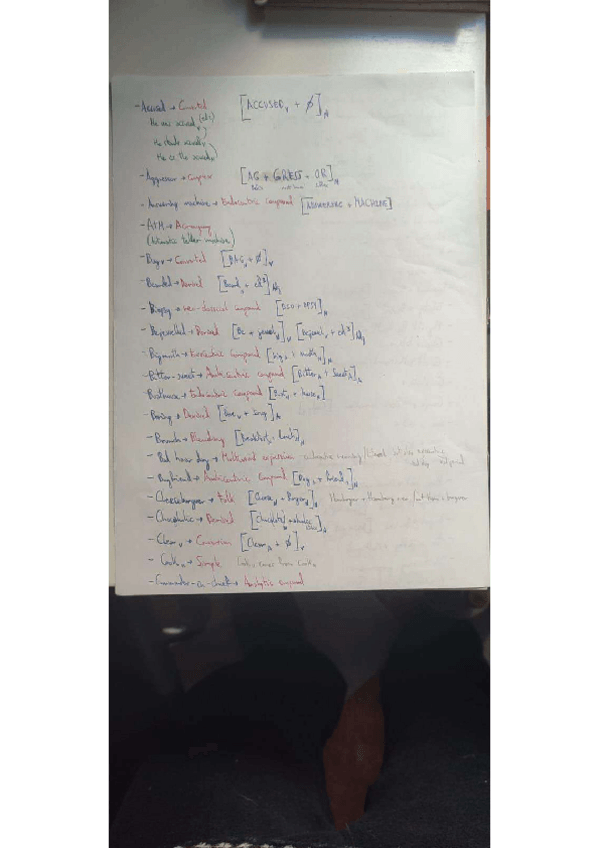 - Accused → Converted [ACCUSED V + Ø] N
He was accused
He is the accused
- Aggressor → Complex [AG + GRESS + OR] N
- Answering machine → Endocentric compound [ANSWERING + MACHINE]
- ATM → Acronymy
(Automatic teller machine)
- Bag V → Converted [BAG N + Ø] V
- Bearded → Derived [Beard N + ed] Adj
- Biopsy → neo-classical compound [BIO + OPSY] N
- Bejewelled → Derived [Be + jewel N] V [Bejewel V + ed] Adj
- Bigmouth → Exocentric Compound [big A + mouth N] N
- Bitter-sweet → Audiocentric compound [Bitter A + Sweet A] A
- Boathouse → Endocentric compound [Boat N + house N]
- Boring → Derived [Bore V + ing] A
- Brunch → Blending [Breakfast + lunch] N
- Bad hair day → Multi word expression
- Boyfriend → Audiocentric compound [Boy N + Friend N] N
- Cheeseburger → Folk [Cheese N + Burger N] N
- Chocoholic → Derived [Chocolate N + aholic] N
- Clean V → Conversion [Clean A + Ø] V
- Cook N → Simple Cook V comes from Cook N
- Commander-in-chief → Analytic compound